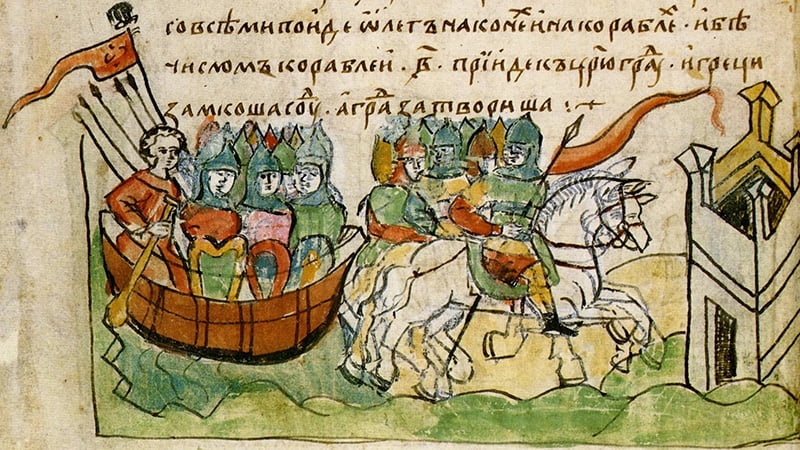 со всѣми поиде ѡлегъ на конех и на кораблех · и бѣ
числомъ кораблей · в҃ · прїиде къ црюграⷣ · и греци
замкоша соуⷣ · а граⷣ затвориша :+